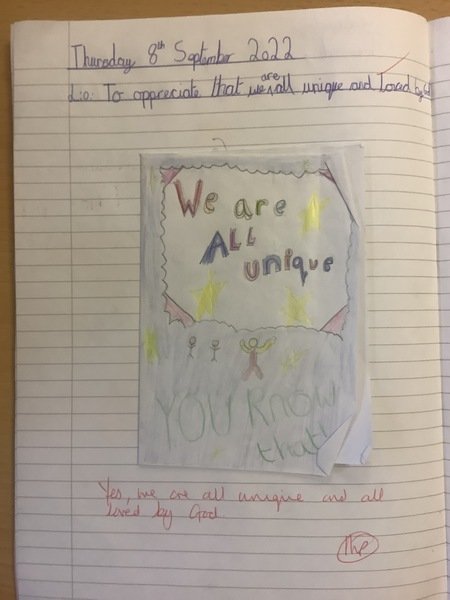 Thursday 8th September 2022
L:o: To appreciate that we are all unique and loved by God
We are
ALL
unique
YOU KNOW
that!
Yes, we are all unique and all
loved by God
1HP